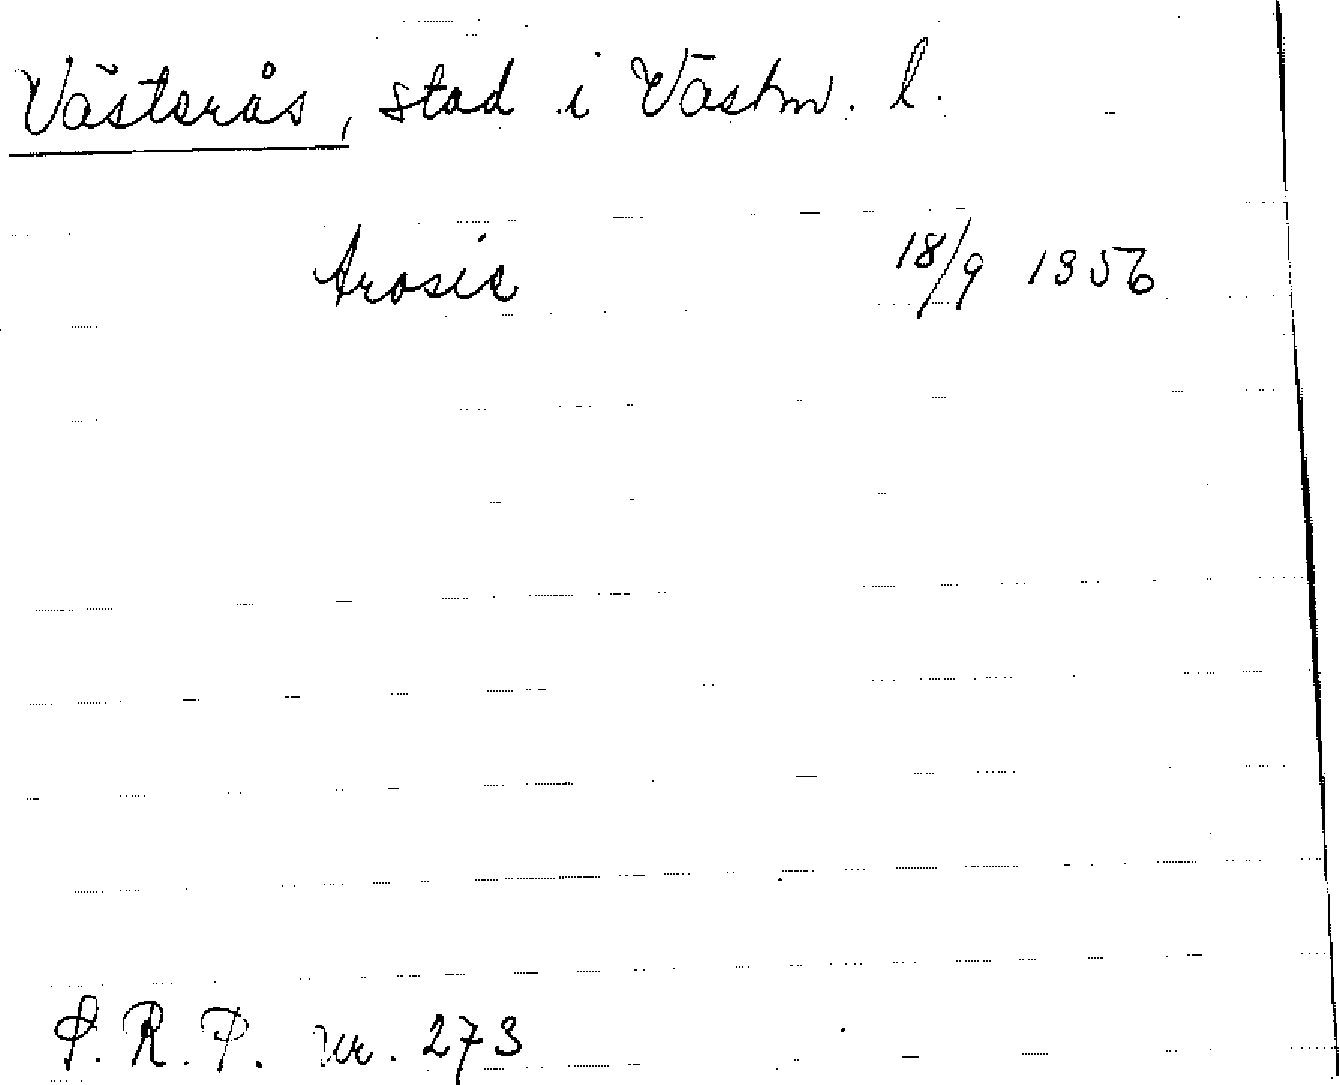 Västerås, stad i Västm. l.
Arosie 18/9 1356
S.R.P. nr. 273